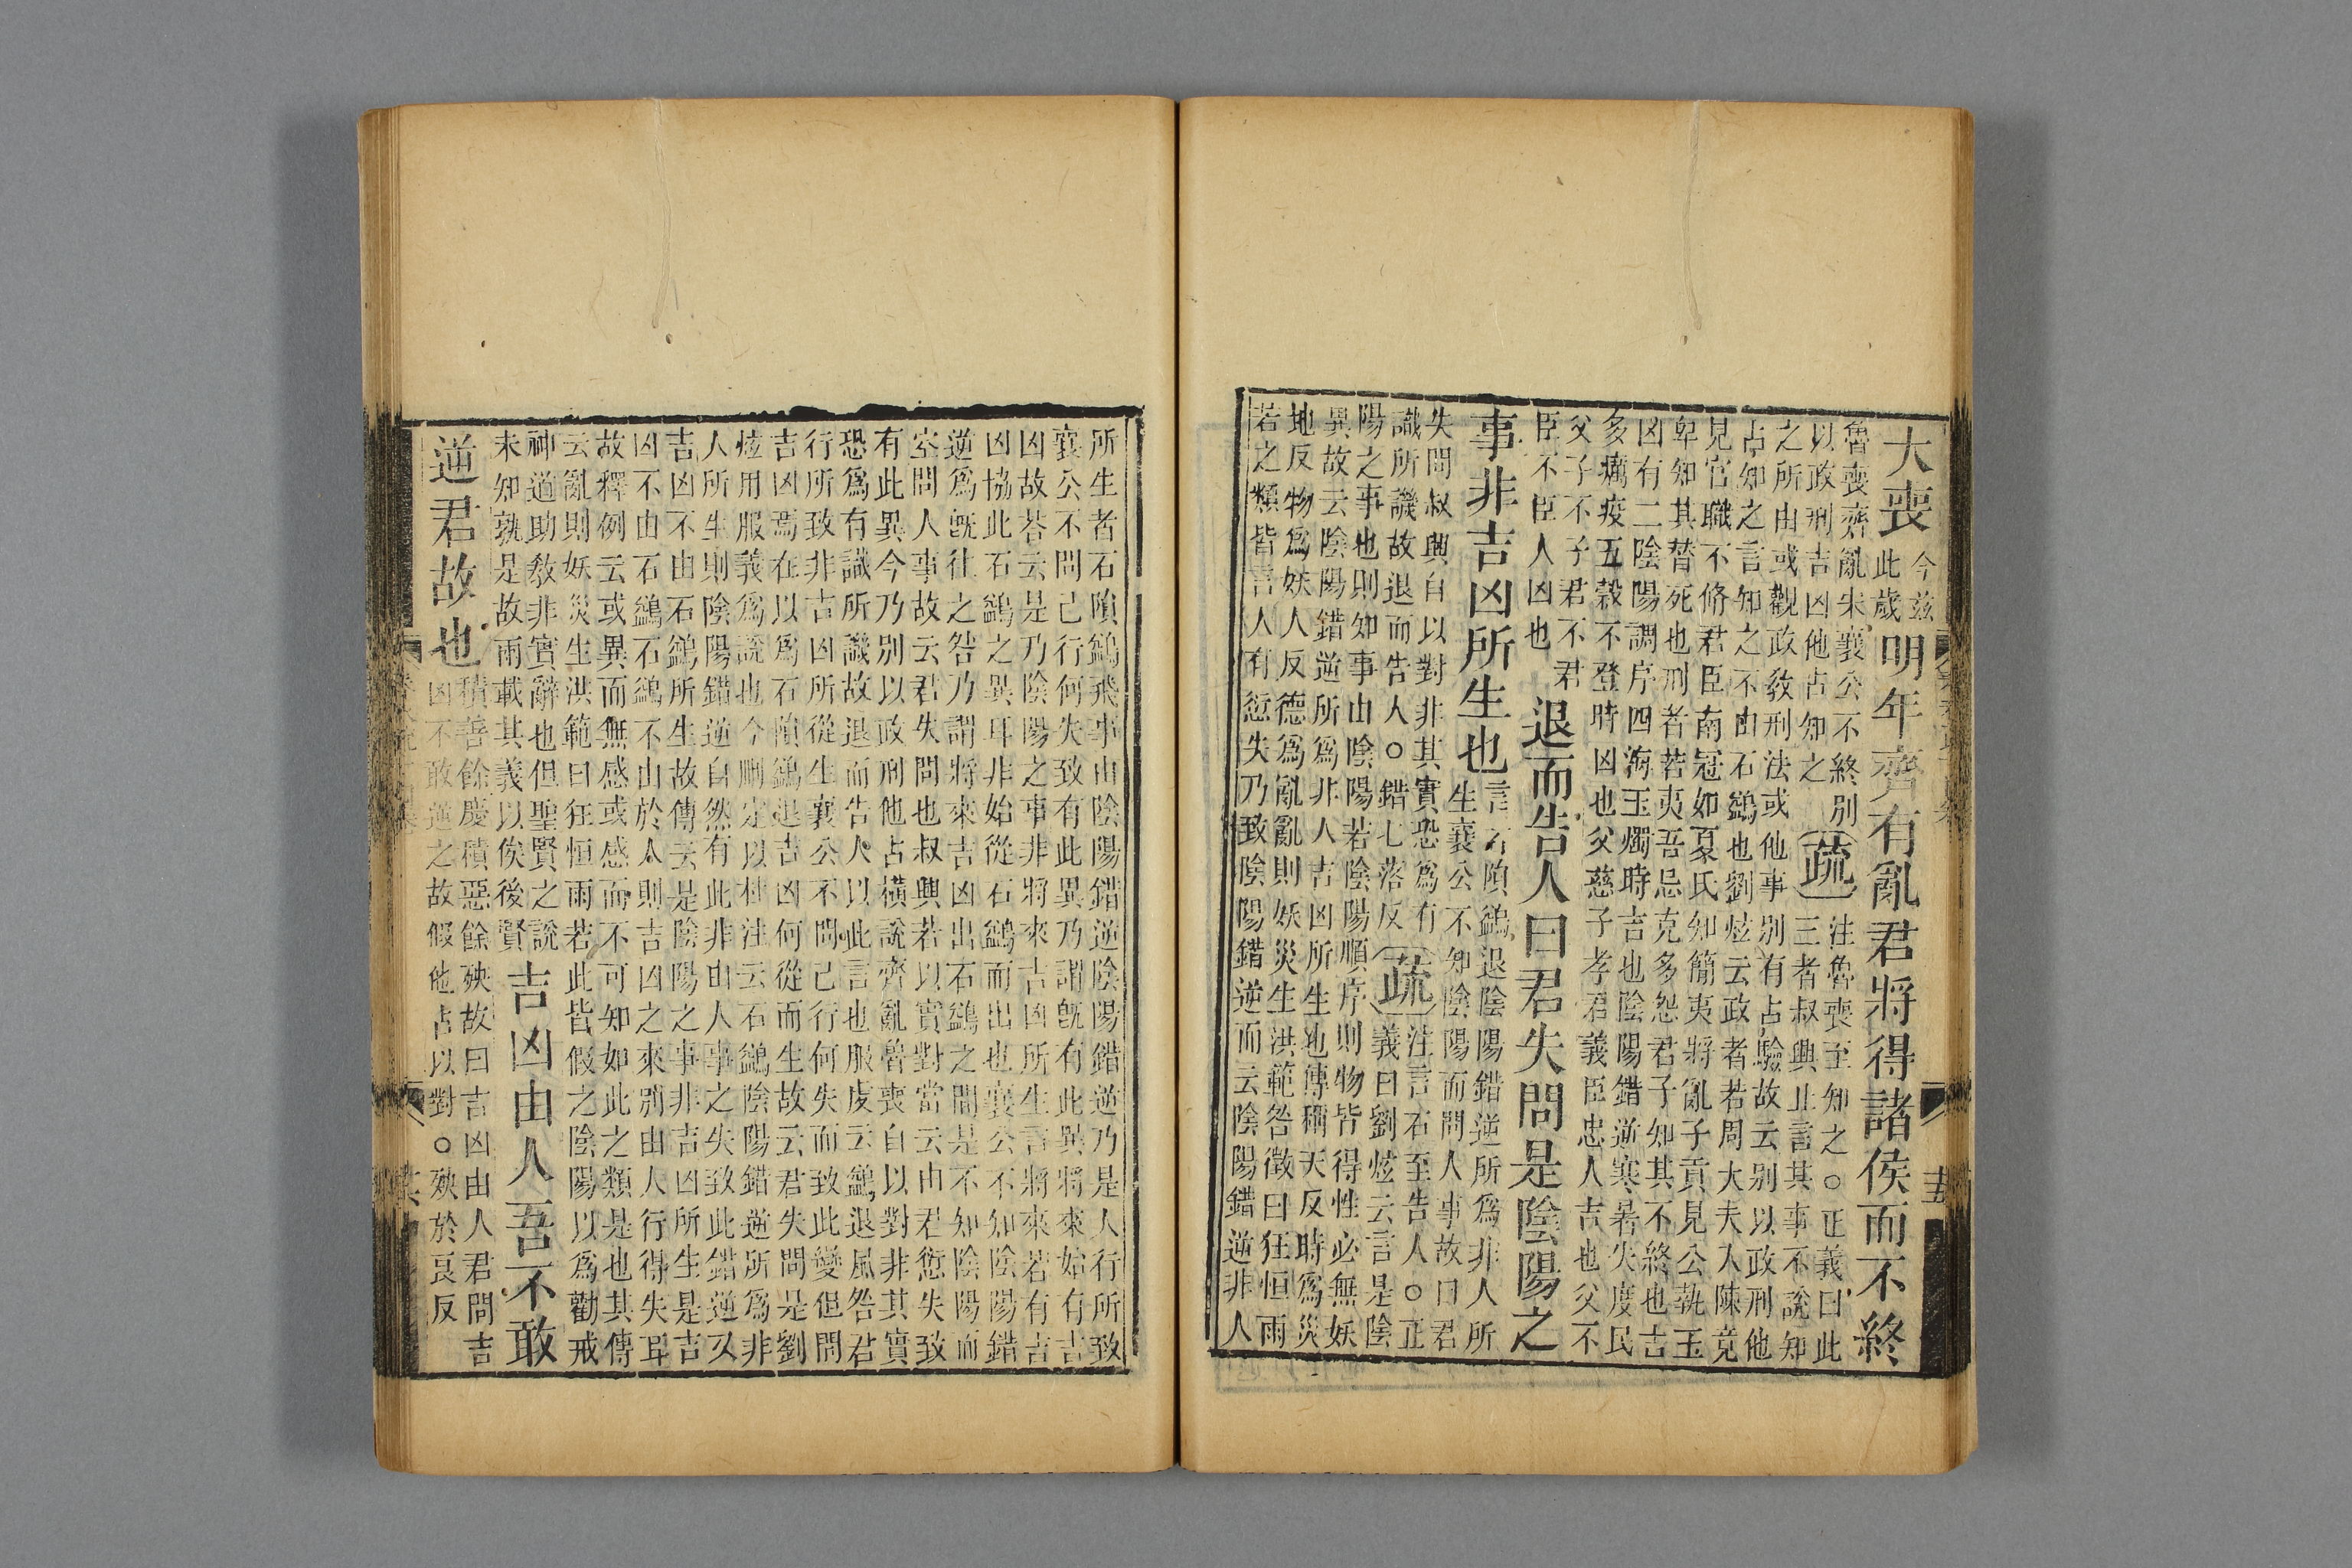 大喪今茲此歲明年齊有亂君將得諸侯而不終
魯喪齊亂宋襄公不終別
以政刑吉凶他占知之疏注魯喪至知之○正義曰此
之所由或觀政敎刑法或他事三者叔興止言其事不說知
占知之言知之不由石鷁也劉炫云政者若周大夫入陳竟
見官職不脩君臣南冠如夏氏知簡夷將亂子貢見公執玉
卑知其替死也刑者若夷吾忌克多怨君子知其不終也吉
凶有二陰陽調序四海玉燭時吉也陰陽錯逆寒暑失度民
多癘疫五穀不登時凶也父慈子孝君義臣忠人吉也父不
父子不子君不君
臣不臣人凶也退而告人曰君失問是陰陽之
事非吉凶所生也言石隕鷁退陰陽錯逆所爲非人所
生襄公不知陰陽而問人事故曰君
失問叔興自以對非其實恐爲有
識所譏故退而告人○錯七落反疏注言石至告人○正
義曰劉炫云言是陰
陽之事也則知事由陰陽若陰陽順序則物皆得性必無妖
異故云陰陽錯逆所爲非人吉凶所生也傳稱天反時爲災
地反物爲妖人反德爲亂亂則妖災生洪範咎徵曰狂恒雨
若之類皆言人有愆失乃致陰陽錯逆而云陰陽錯逆非人
所生者石隕鷁飛事由陰陽錯逆陰陽錯逆乃是人行所致
襄公不問己行何失致有此異乃謂旣有此異將來始有吉
凶故荅云是乃陰陽之事非將來吉凶所生言將來若有吉
凶協此石鷁之異耳非始從石鷁而出也襄公不知陰陽錯
逆爲旣往之咎乃謂將來吉凶出石鷁之間是不知陰陽而
空問人事故云君失問也叔興若以實對當云由君愆失致
有此異今乃別以政刑他占橫說齊亂魯喪自以對非其實
恐爲有識所譏故退而告人以此言也服虔云鷁退風咎君
行所致非吉凶所從生襄公不問己行何失而致此變但問
吉凶焉在以爲石隕鷁退吉凶何從而生故云君失問是劉
炫用服義爲說也今刪定以杜注云石鷁陰陽錯逆所爲非
人所生則陰陽錯逆自然有此非由人事之失致此錯逆又
吉凶不由石鷁所生故傳云是陰陽之事非吉凶所生是吉
凶不由石鷁石鷁不由於人則吉凶之來別由人行得失耳
故釋例云或異而無感或感而不可知如此之類是也其傳
云亂則妖災生洪範曰狂恒雨若此皆假之陰陽以爲勸戒
神道助敎非實辭也但聖賢之說
未知孰是故兩載其義以俟後賢吉凶由人吾不敢
逆君故也積善餘慶積惡餘殃故曰吉凶由人君問吉
凶不敢逆之故假他占以對○殃於良反